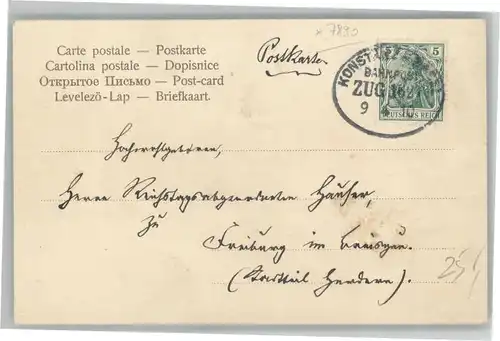 x 7890
Carte postale — Postkarte
Cartolina postale — Dopisnice
Открытое Письмо — Post-card
Levelező-Lap — Briefkaart.
Postkarte
5
KONSTANZ
BAHNPOST
ZUG 162
9 4
DEUTSCHES REICH
Hochwohlgeboren,
Herrn Reichstagsabgeordneten Hauser,
zu
Freiburg im Breisgau.
(Stadtteil Herdern).